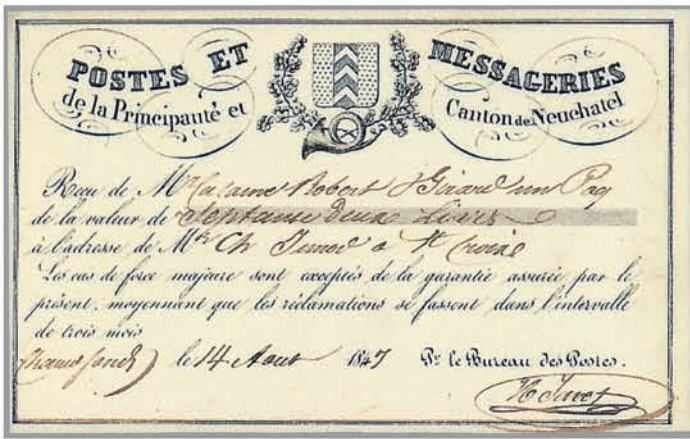 POSTES ET MESSAGERIES
de la Principauté et Canton de Neuchatel
Recu de Mr Robert & Girard un Paq
de la valuer de Septante deux Livres
à l'adresse de Mr Ch Junod a St Croixe
Les cas de force majaire sont exceptés de la garantie assurée par le
présent, moyennant que les réclamations se fassent dans l'intervalle
de trois mois
le 14 Aout 1847 Pr. le Bureau des Postes.